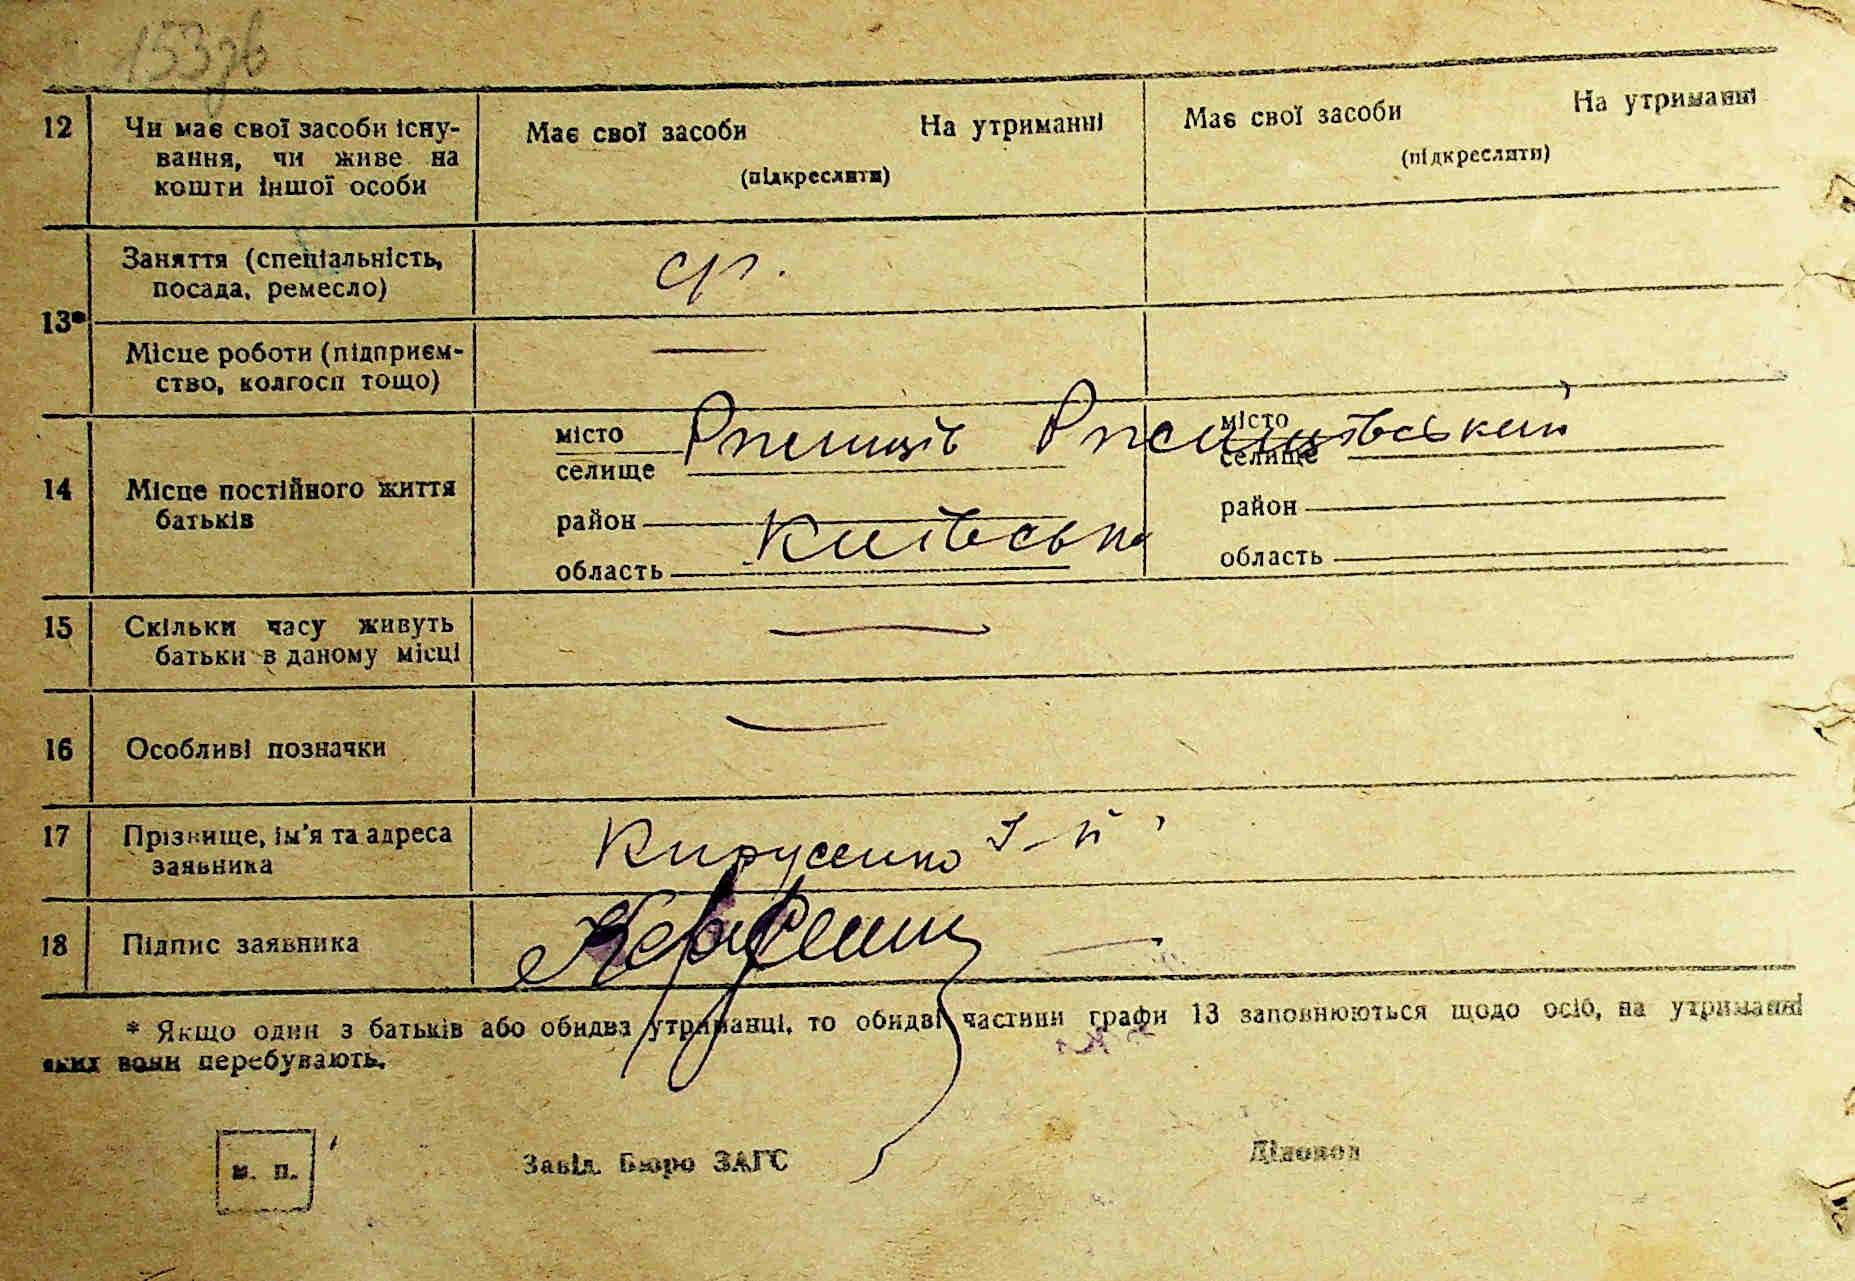 153зв
12 Чи має свої засоби існу- Має свої засоби На утриманні Має свої засоби На утриманні
вання, чи живе на (підкреслити) (підкреслити)
кошти іншої особи
13* Заняття (спеціальність,
посада, ремесло)
Місце роботи (підприєм- —
ство, колгосп тощо)
14 Місце постійного життя
батьків
місто Ржищів Ржищівський місто
селище селище
район район
область Київська область
15 Скільки часу живуть —
батьки в даному місці
16 Особливі позначки —
17 Прізвище, ім'я та адреса
заявника
18 Підпис заявника
* Якщо один з батьків або обидва утриманці, то обидві частини графи 13 заповнюються щодо осіб, на утриманні
яких вони перебувають.
м. п. Завід. Бюро ЗАГС Діловод